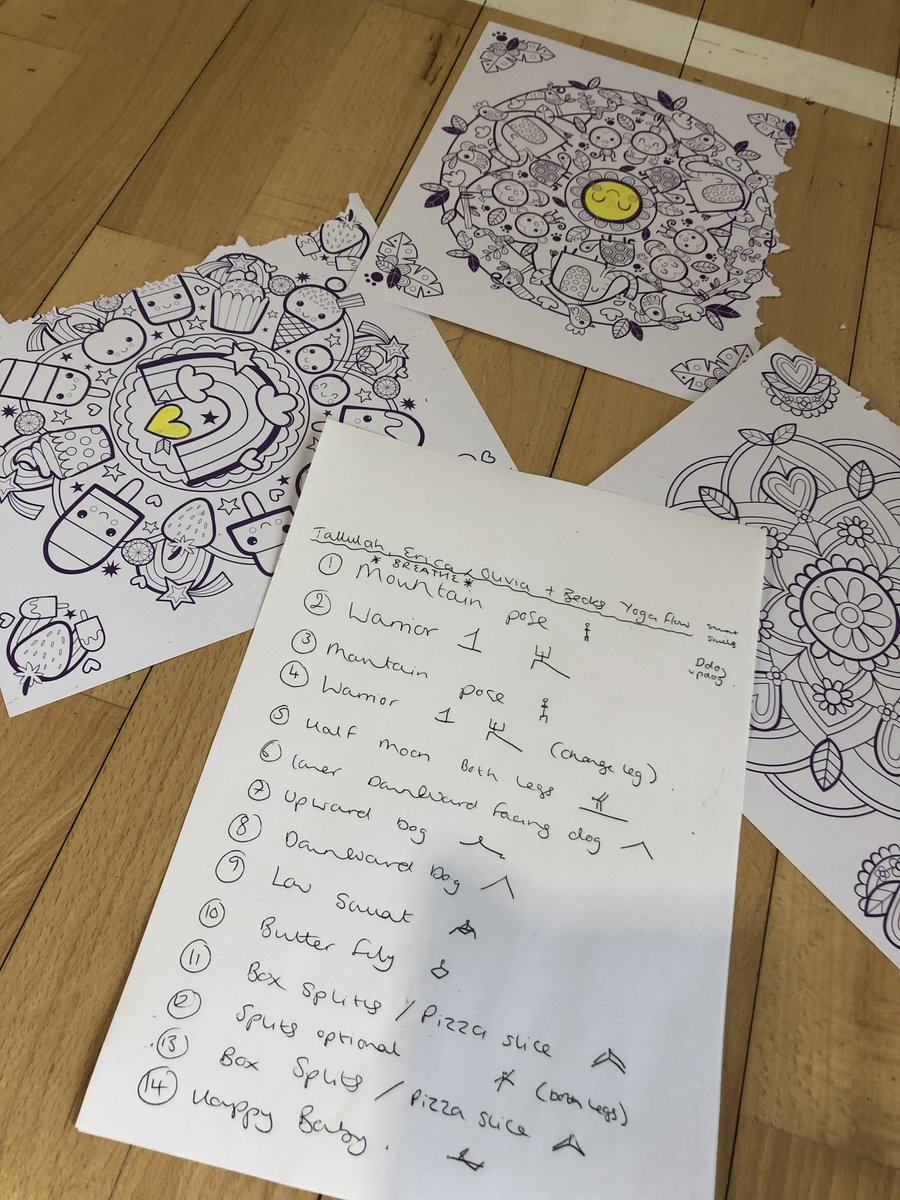 Tallulah, Erica, Olivia + Becks Yoga flow
* BREATHE *
① Mountain pose
② Warrior 1
③ Mantain pose
④ Warrior 1 (change leg)
⑤ Half moon Both legs
⑥ Downward facing dog
⑦ Upward Dog
⑧ Downward Dog
⑨ Low Squat
⑩ Butter fily
⑪ Box Splits / Pizza slice
⑫ Splits optional (both legs)
⑬ Box Splits / Pizza slice
⑭ Happy Baby.
Ddog
updog